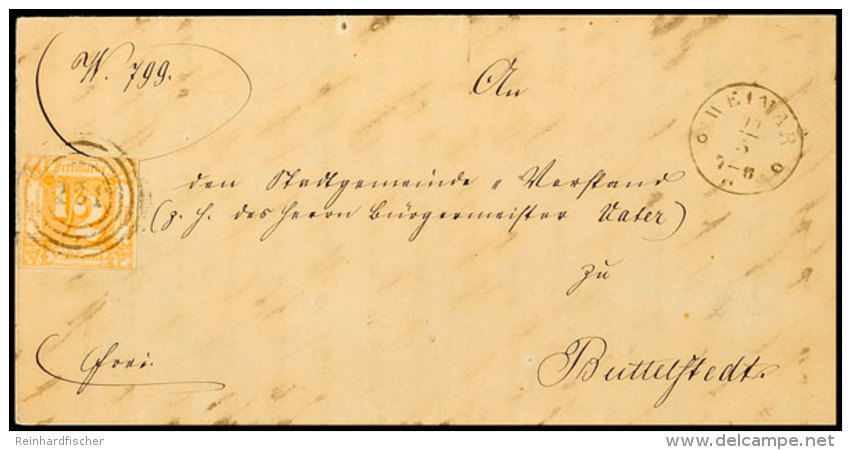 N. 799.
An
WEIMAR
den Stadtgemeinde „ Vorstand
(z. H. des Herrn Bürgermeister Vater)
zu
frei.
Buttelstedt.
Reinhardfischer
www.delcampe.net